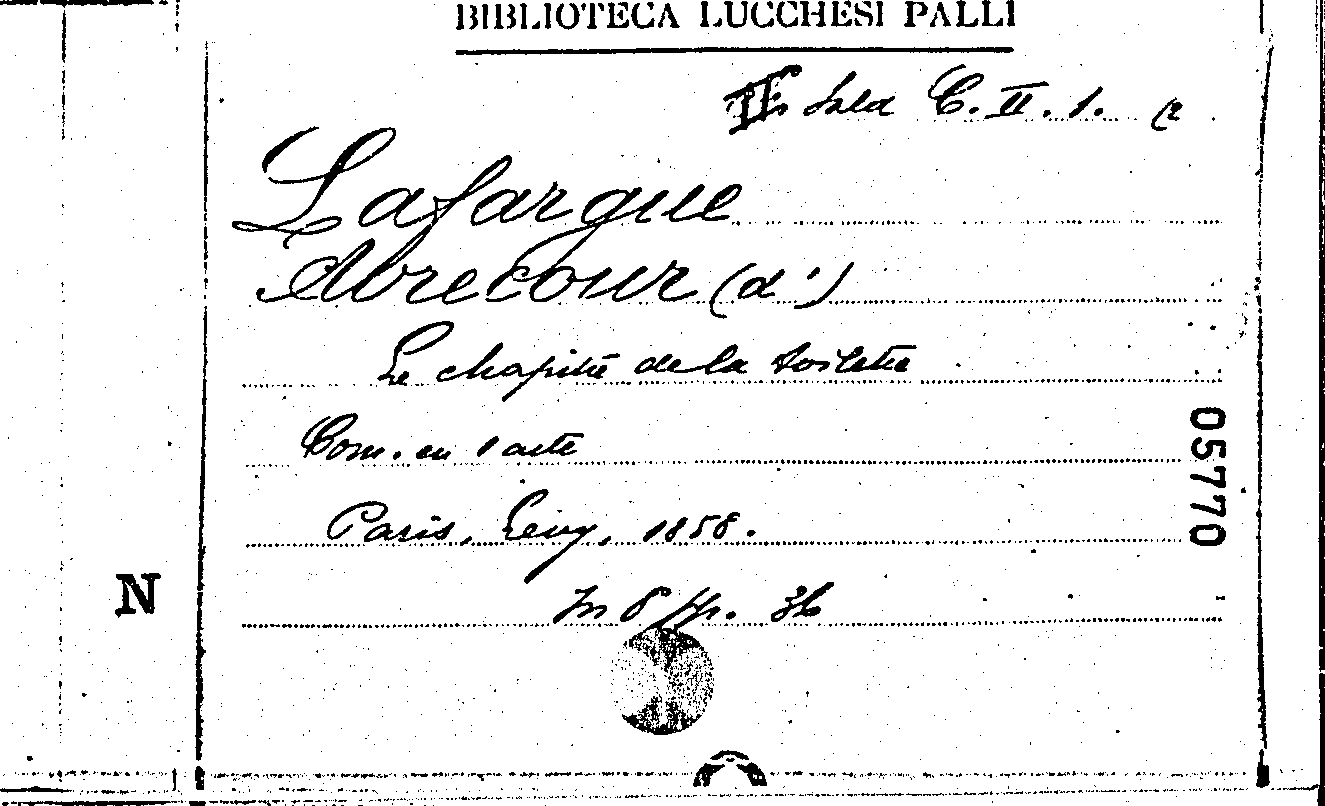 BIBLIOTECA LUCCHESI PALLI
II Sala C. II. 1. (2
Lafargue
Abrecour (d')
Le chapitre de la toilette
Com. en 1 acte
Paris, Levy, 1858.
In 8 pp. 36
05770
N